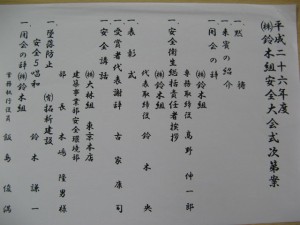 平成二十六年度
㈱鈴木組安全大会式次第案
一 黙　祷
一 来賓の紹介
一 開会の辞
㈱鈴木組
専務取締役　高野　伸一郎
一 安全衛生総括責任者挨拶
㈱鈴木組
代表取締役　鈴木　央
一 表彰式
一 受賞者代表謝辞　古家　康司
一 安全講話
㈱大林組　東京本店
建築事業部安全環境部
部長　木嶋　隆男様
一 墜落防止
安全5唱和　㈲拓新建設
鈴木　謙一
一 閉会の辞　㈱鈴木組
常務執行役員　飯島　俊満